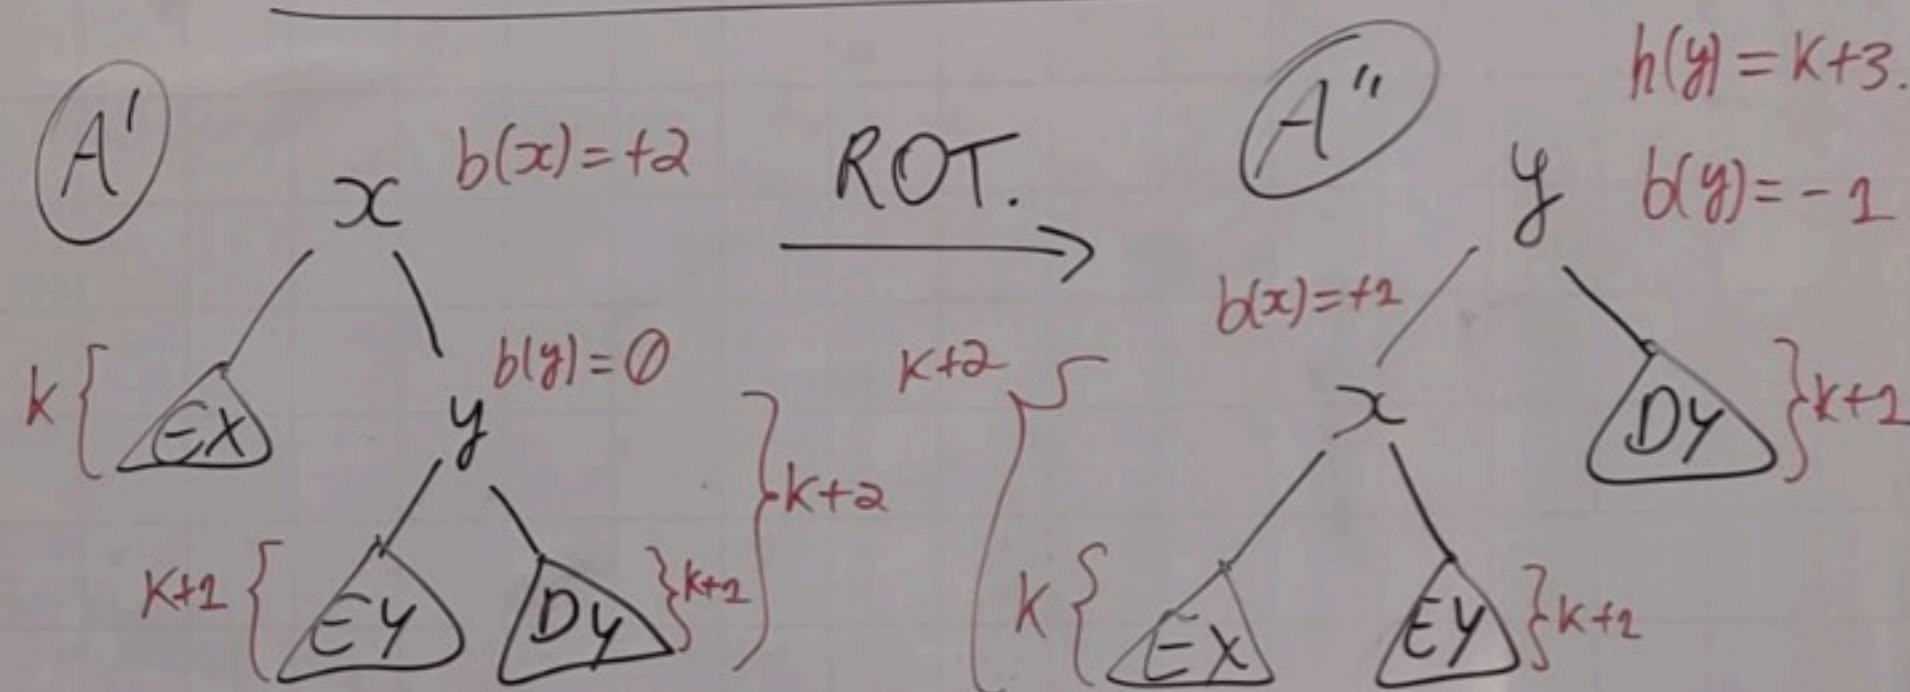 A'
b(x) = +2
x
k
EX
b(y) = 0
y
k+2
K+1
EY
DY
k+1
ROT.
A''
h(y) = K+3.
y
b(y) = -1
b(x) = +1
K+2
x
DY
k+1
K
EX
EY
k+1